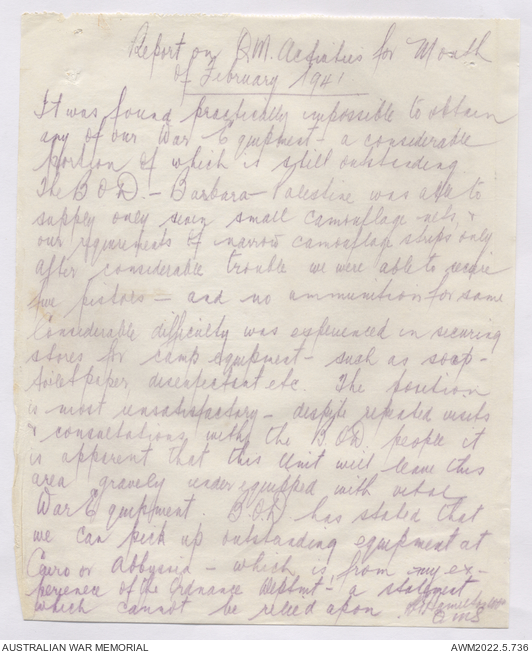 Report on Q.M. Activities for Month
of February 1941
It was found practically impossible to obtain
any of our War Equipment - a considerable
portion of which is still outstanding.
The B.O.D. - Barbara - Palestine was able to
supply only seven small camouflage nets, &
our requirements of narrow camouflage strips only
After considerable trouble we were able to receive
five pistols - and no ammunition for same
Considerable difficulty was experienced in securing
stores for camp equipment - such as soap -
toilet paper disenfectant etc. The position
is most unsatisfactory - despite repeated visits
& consultations with the B.O.D. people it
is apparent that this Unit will leave this
area gravely under equipped with vital
War Equipment. B.O.D. has stated that
we can pick up outstanding equipment at
Cairo or Abbyssia - which is, from my ex-
perience of the Ordnance Deptmt - a statement
which cannot be relied upon
QMS
AUSTRALIAN WAR MEMORIAL
AWM2022.5.736